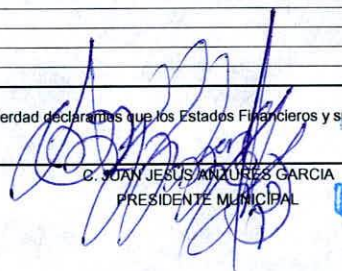 erdad declaramos que los Estados Financieros y s
C. JUAN JESUS ANZURES GARCIA
PRESIDENTE MUNICIPAL